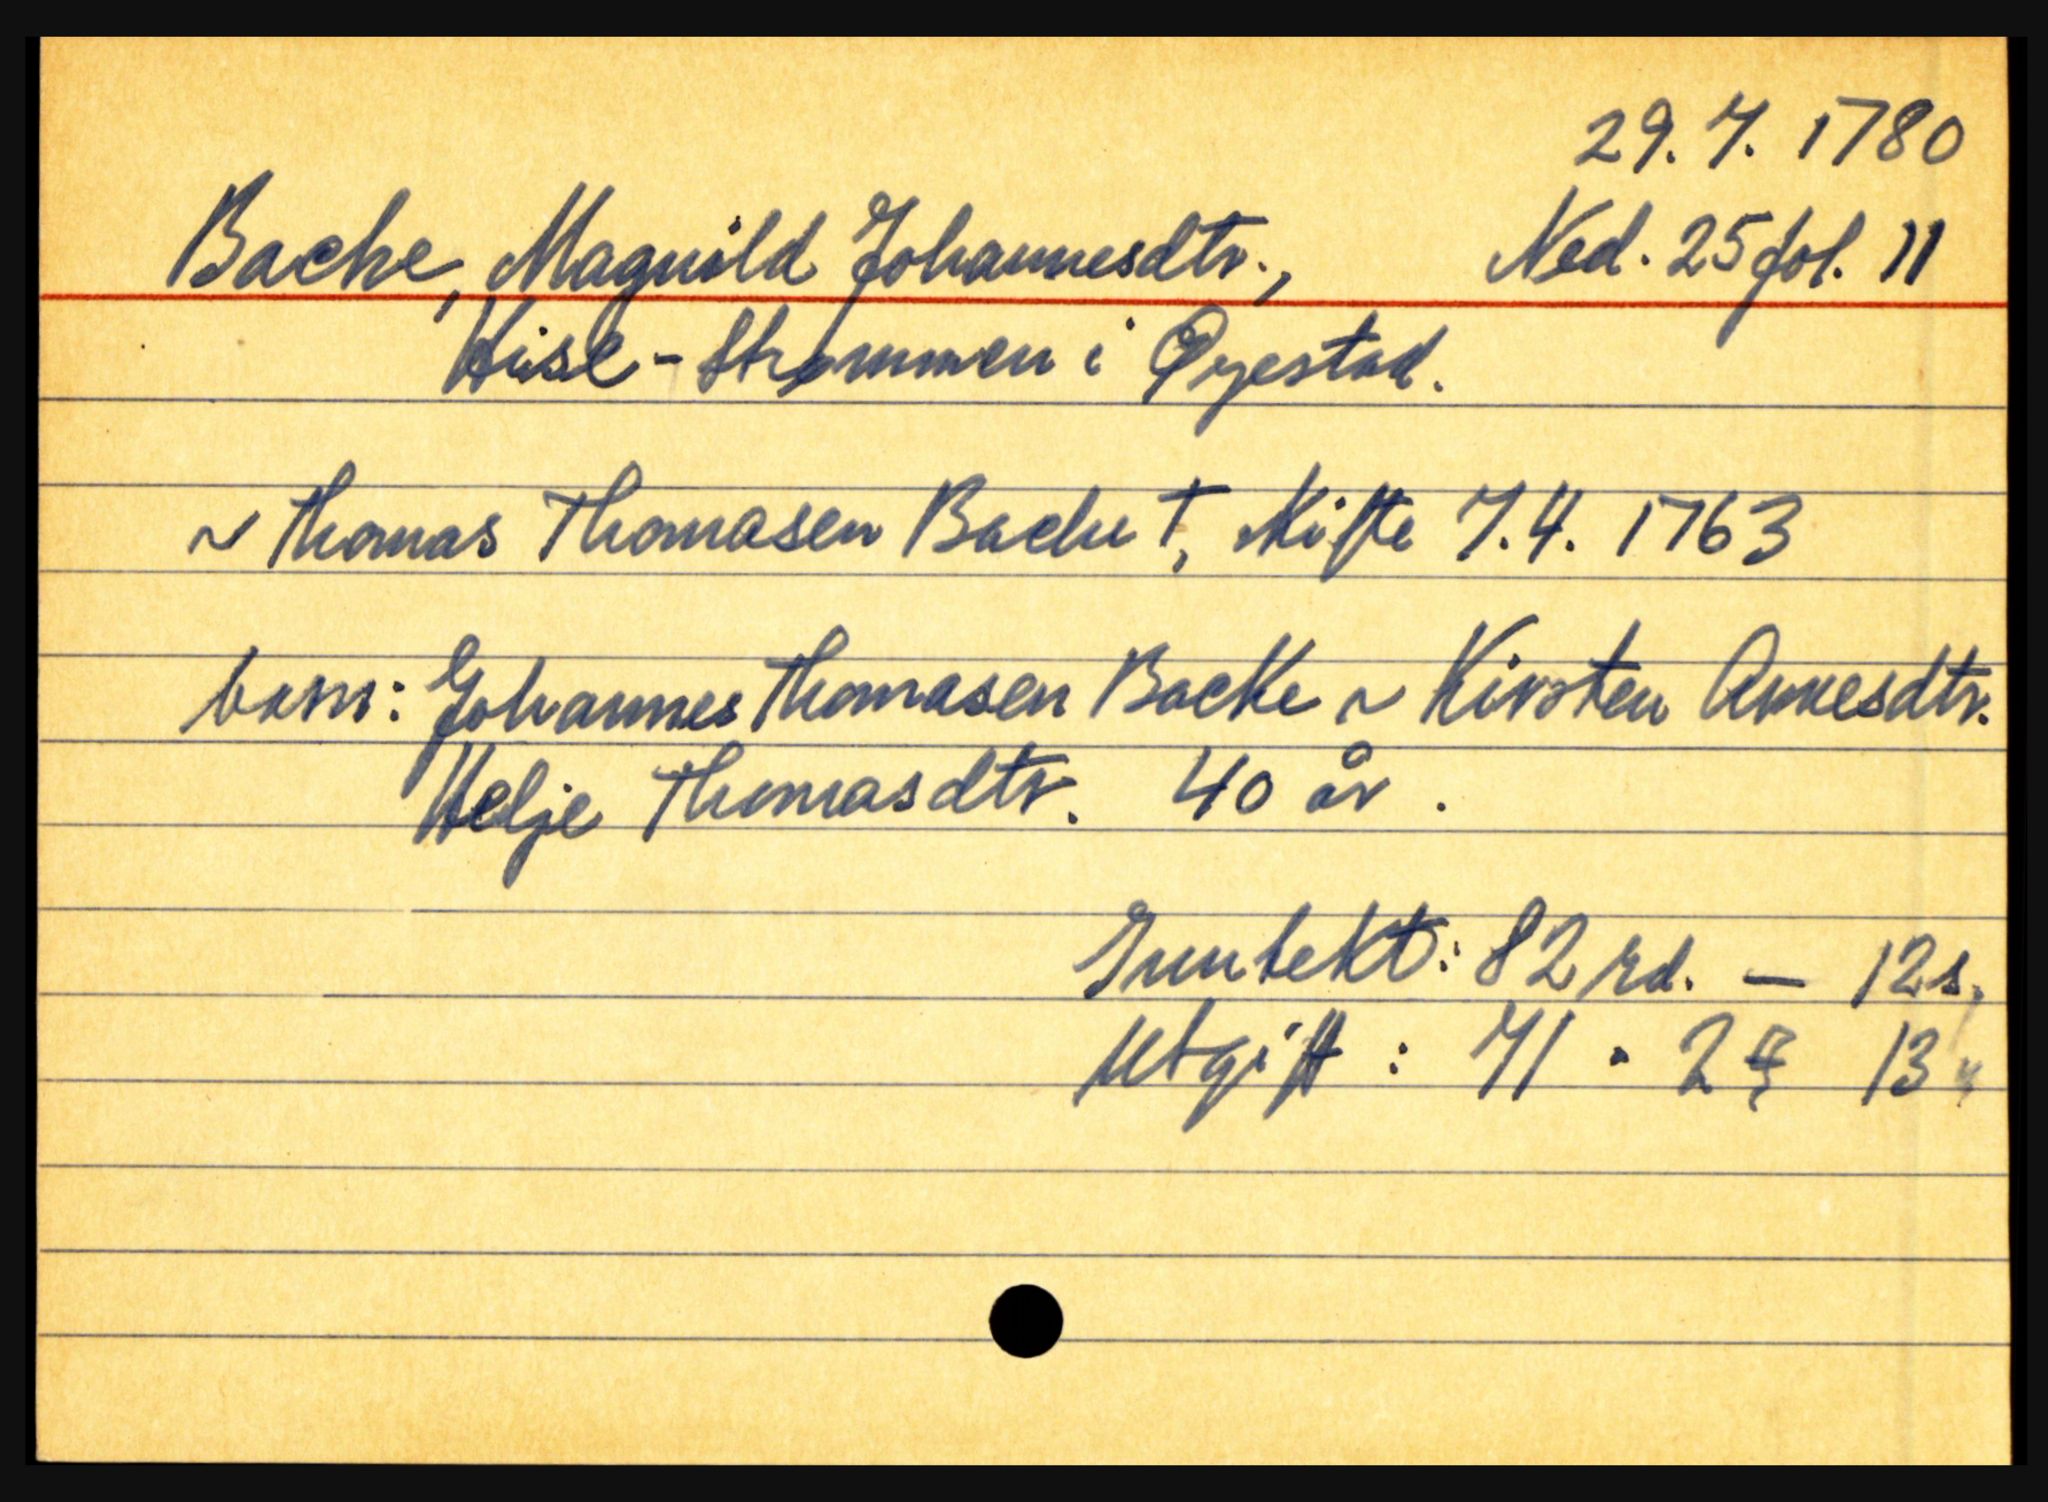 29.7. 1780
Bache, Magnild Johannesdtr., Ned. 25 fol. 11
Hisl-Strømmen i Øyestad.
~ Thomas Thomasen Bache †, skifte 7.4. 1763
barn: Johannes Thomasen Backe ~ Kirsten Annesdtr.
Helje Thomasdtr. 40 år.
Inntekt: 82 rd. — 12 s.
Utgift: 71 " 2 13 "